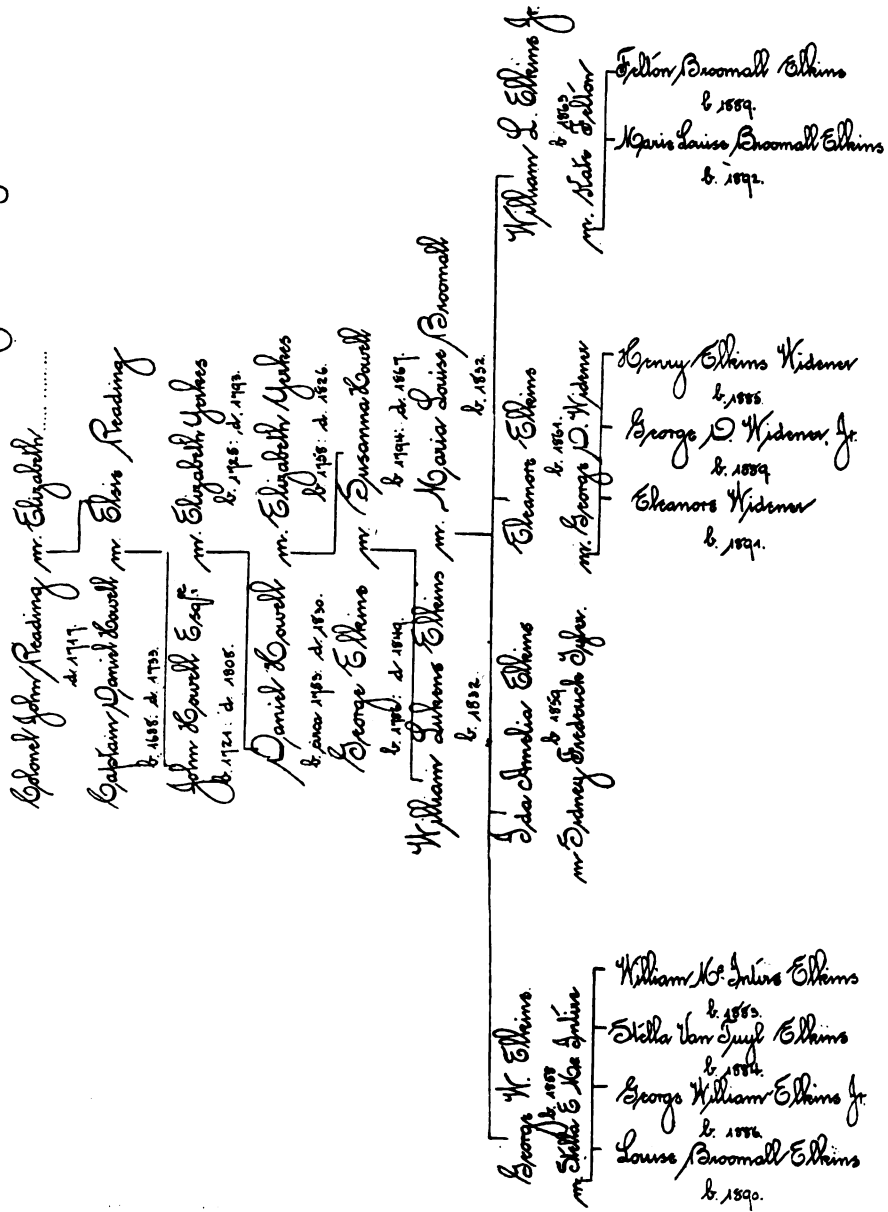 Colonel John Reading m. Elizabeth ............
d. 1717.
Captain Daniel Howell m. Elsie Reading
b. 1688: d. 1733.
John Howell Esqre m. Elizabeth Yerkes
b. 1721: d. 1808. b. 1725: d. 1793.
Daniel Howell m. Elizabeth Yerkes
b. circa 1753: d. 1830. b. 1758: d. 1826.
George Elkins m. Susanna Howell
d. 1849. b. 1794: d. 1867.
William Lukens Elkins m. Maria Louise Broomall
b. 1832. b. 1832.
George W. Elkins
b. 1858
m. Stella E. Mc Intire
William Mc. Intire Elkins
b. 1883.
Stella Van Tuyl Elkins
b. 1884.
George William Elkins Jr.
b. 1886.
Louise Broomall Elkins
b. 1890.
Ida Amelia Elkins
b. 1859
m. Sidney Frederick Tyler.
Eleanore Elkins
b. 1861.
m. George D. Widener
Henry Elkins Widener
b. 1885.
George D. Widener, Jr.
b. 1889
Eleanore Widener
b. 1891.
William L. Elkins Jr.
b. 1863
m. Kate Felton
Felton Broomall Elkins
b. 1889.
Marie Louise Broomall Elkins
b. 1892.